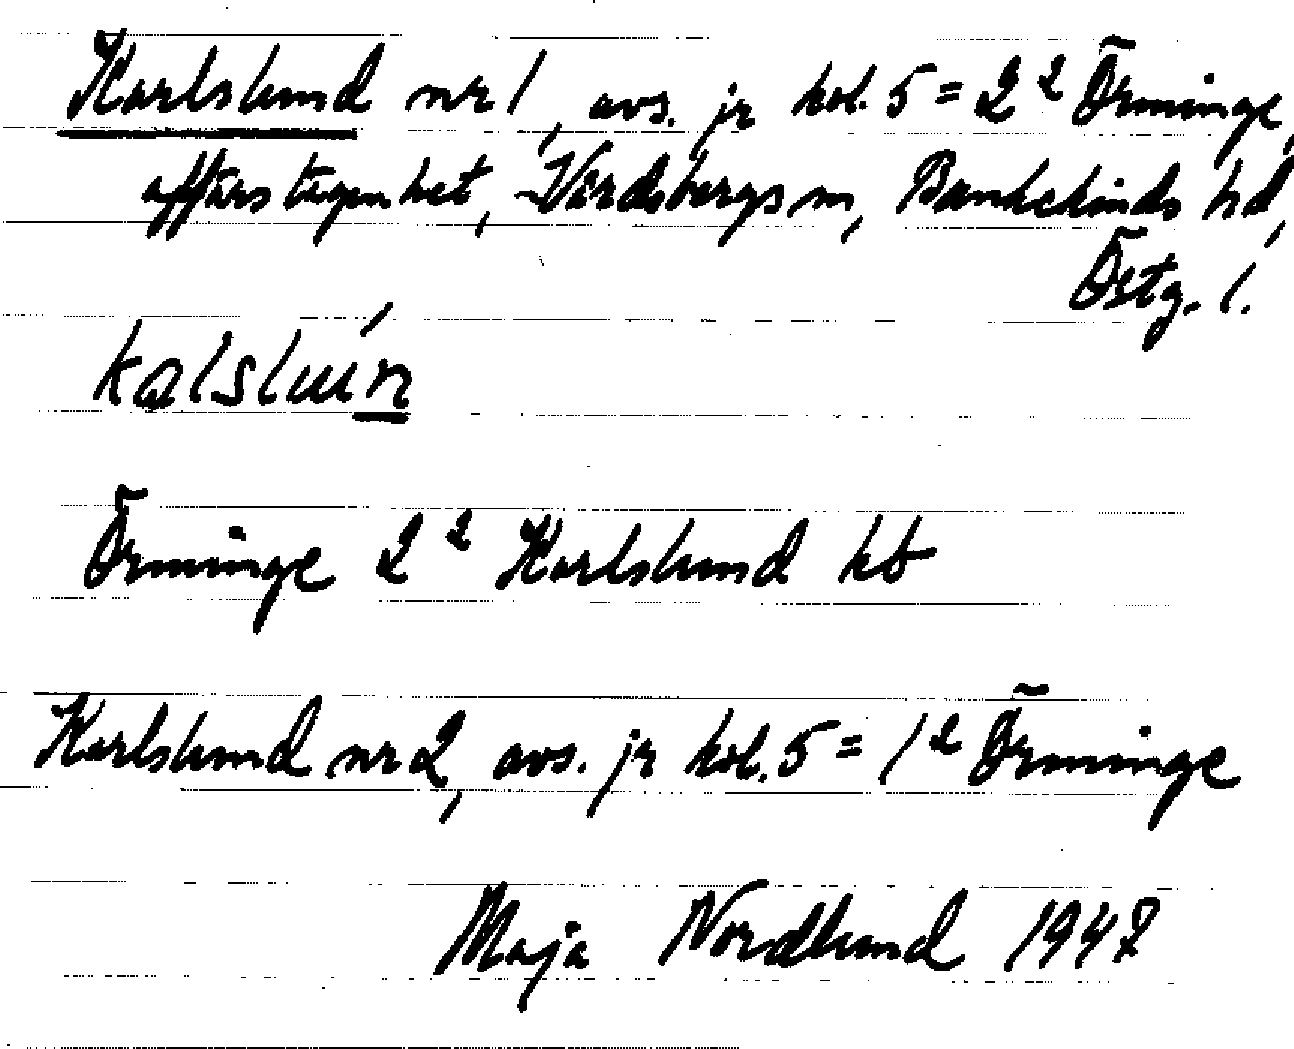 Karlslund nr 1, avs. jr kol. 5 = 2² Örminge,
affärslägenhet, Vårdsbergs sn, Bankekinds hd,
Östg. l.
kalslun
Örminge 2² Karlslund kb
Karlslund nr 2, avs. jr kol. 5 = 1² Örminge
Maja Nordlund 1947